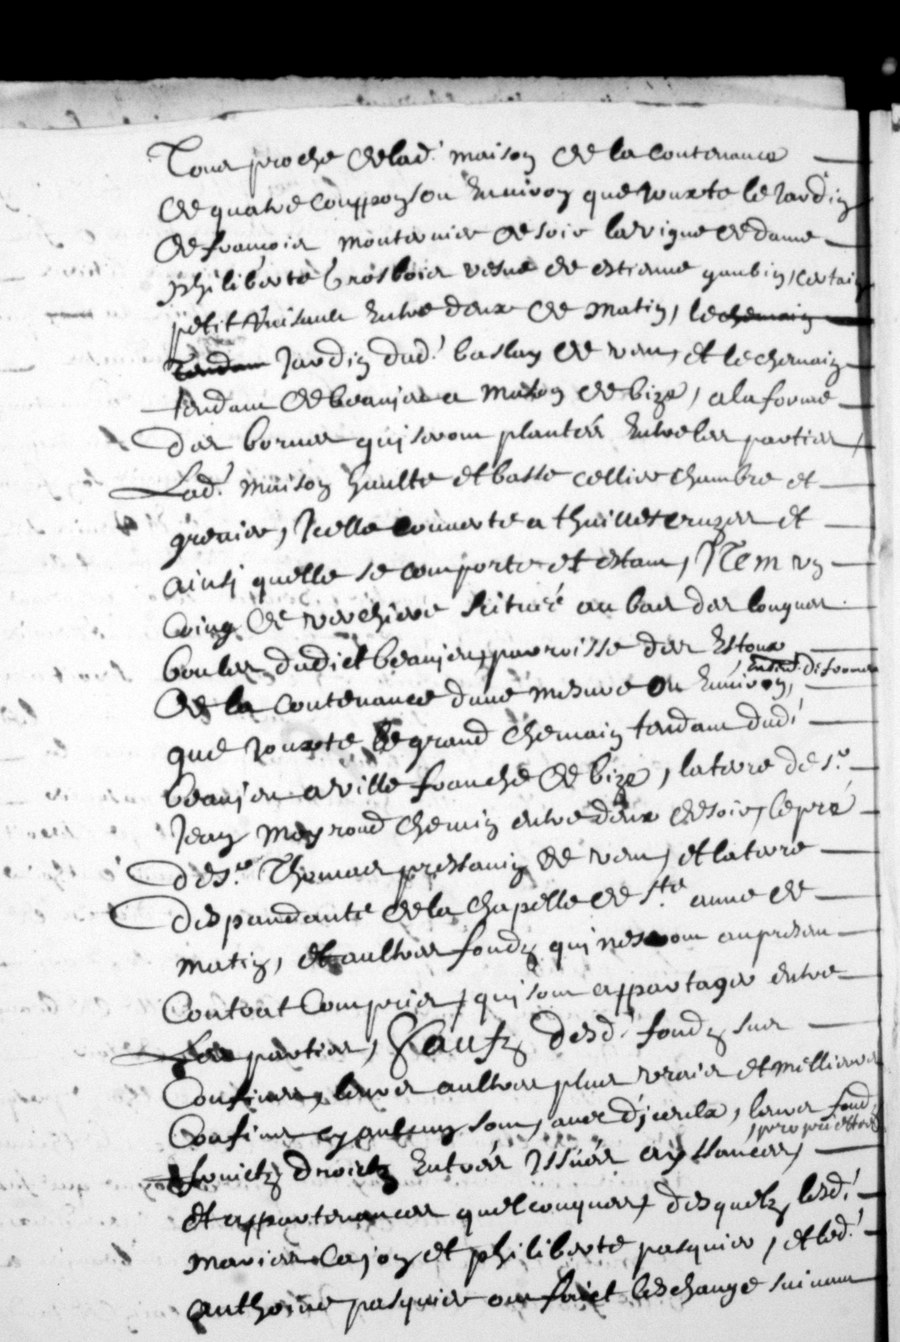 Tous proche de lad. maison de la contenance
de quatre couppons ou environ que jouxte le jardin
de francois monternier de soir la vigne de dame
philiberte brosboir vefve de estienne gaubin, certain
petit ruisseau entre deux de matin, le chemain
tendam jardin dud. baslay de vent, et le chemain
tendam de beaujeu a mascon de bize, a la forme
des bornes qui seront plantées entre les parties,
Lad. maison haulte et basse cellier chambre et
grenier, Icelle couverte a thuilles cruzes et
ainsi quelle se comporte et estant, Item un
coing de verchiere scitué au bas des longues
boules dudict beaujeu, parroisse des Estoux
de la contenance dune mesure ou environ,
que jouxte le grand chemain tendam dud.
beaujeu a ville franche de bize, la terre de sr.
Jean meyroud chemin entre deux de soir, le pré
de sr. Thomas prestavin de vent, et la terre
despandante de la chapelle de Ste anne de
matin, et aultres fondz qui ne sont au presen
Contrat Compris, qui sont a partager entre
Les parties, Saufz desd. fondz sur
Confins, leurs aultres plus vrais et meilleurs
Confins cy aulcuns sont, avec d'jceulx, leurs fond,
proprietés
fruictz droictz entrées issües aysances,
et appartenances quelconques, desquelz lesd.
maries Lajon et philiberte pasquier, et led.
anthoine pasquier ont faict leschange suivant